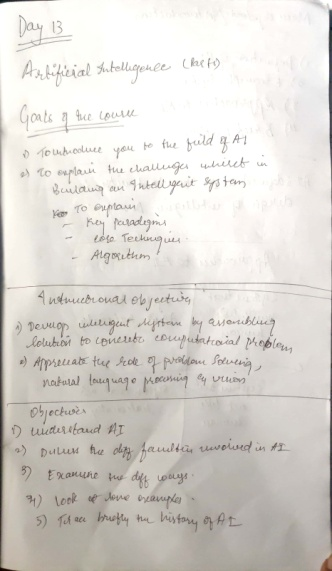 Day 13
Artificial Intelligence
Goals of the course
1) To introduce you to the field of AI
2) To explain the challenges inherent in
Building an Intelligent System
To explain
- Key paradigms
- core Techniques
- Algorithm
Instructional Objective
1) Develop intelligent system by assembling
solution to concrete computational problem
2) Appreciate the role of problem solving,
natural language processing vision
Objectives
1) understand AI
2) Discuss the diff faculties involved in AI
3) Examine the diff ways.
4) Look at some examples.
5) Trace briefly the history of AI